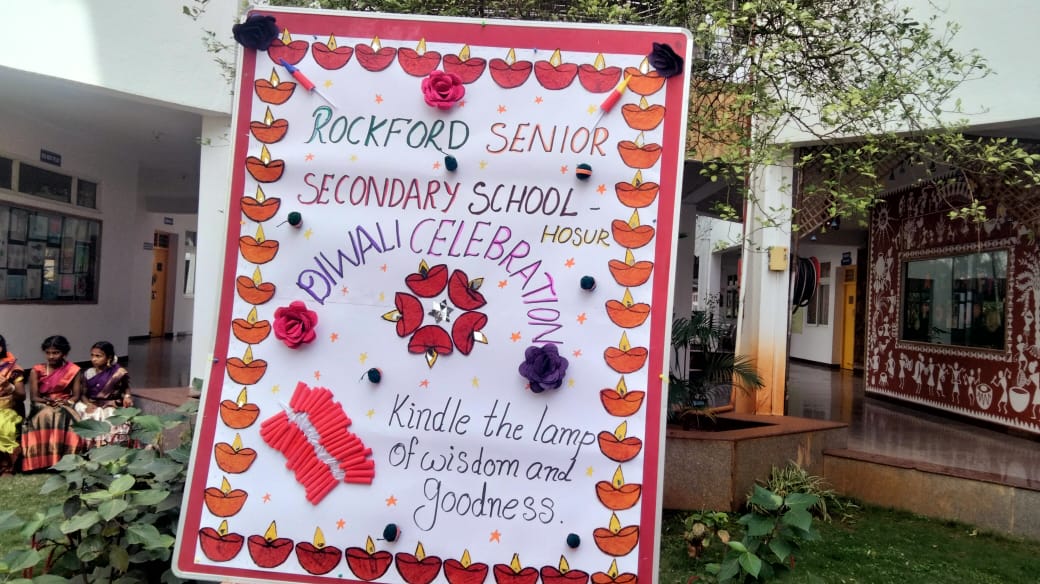 ROCKFORD SENIOR
SECONDARY SCHOOL -
HOSUR
DIWALI CELEBRATION
Kindle the lamp
of wisdom and
goodness.